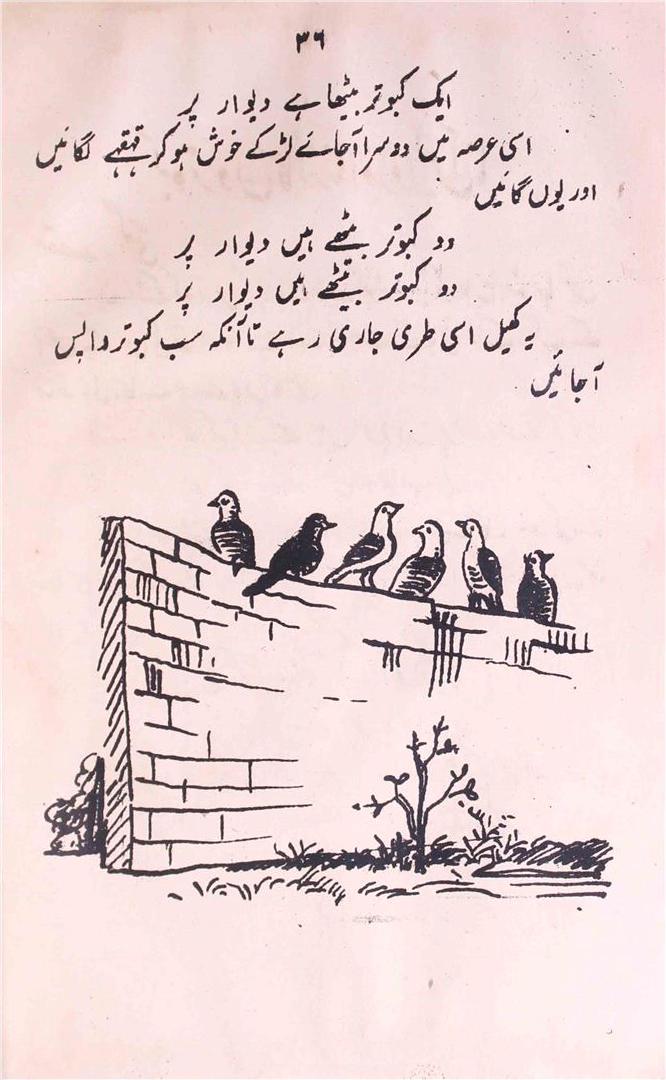 ۳۶
ایک کبوتر بیٹھا ہے دیوار پر
اسی عرصہ میں دوسرا آجائے لڑکے خوش ہو کر قہقہے لگائیں
اور یوں گائیں
دو کبوتر بیٹھے ہیں دیوار پر
دو کبوتر بیٹھے ہیں دیوار پر
یہ کھیل اسی طری جاری رہے تا آنکہ سب کبوتر واپس
آجائیں